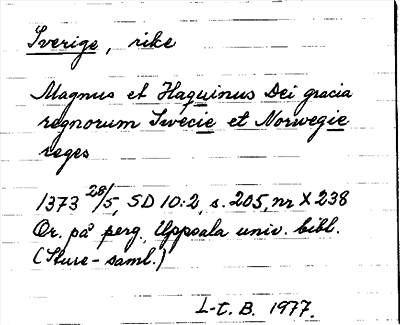 Sverige, rike
Magnus et Haquinus Dei gracia
regnorum Swecie et Norwegie
reges
1373 28/5, SD 10:2, s. 205, nr X 238
Or. på perg. Uppsala univ. bibl.
(Sture-saml.)
L-t. B. 1977.